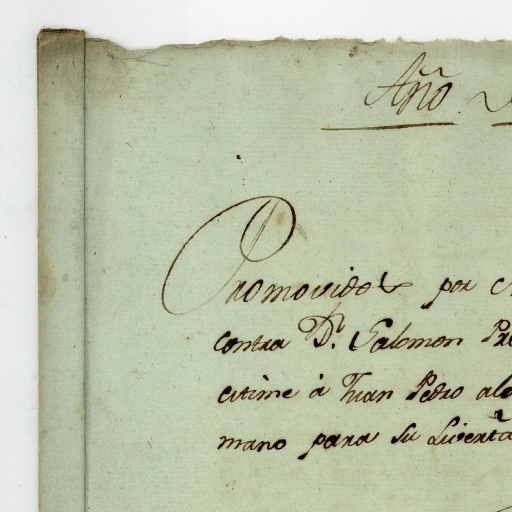 Año
Promovidos por
contra D.n Salomon
citime â Juan Pedro
mano para su Livertã